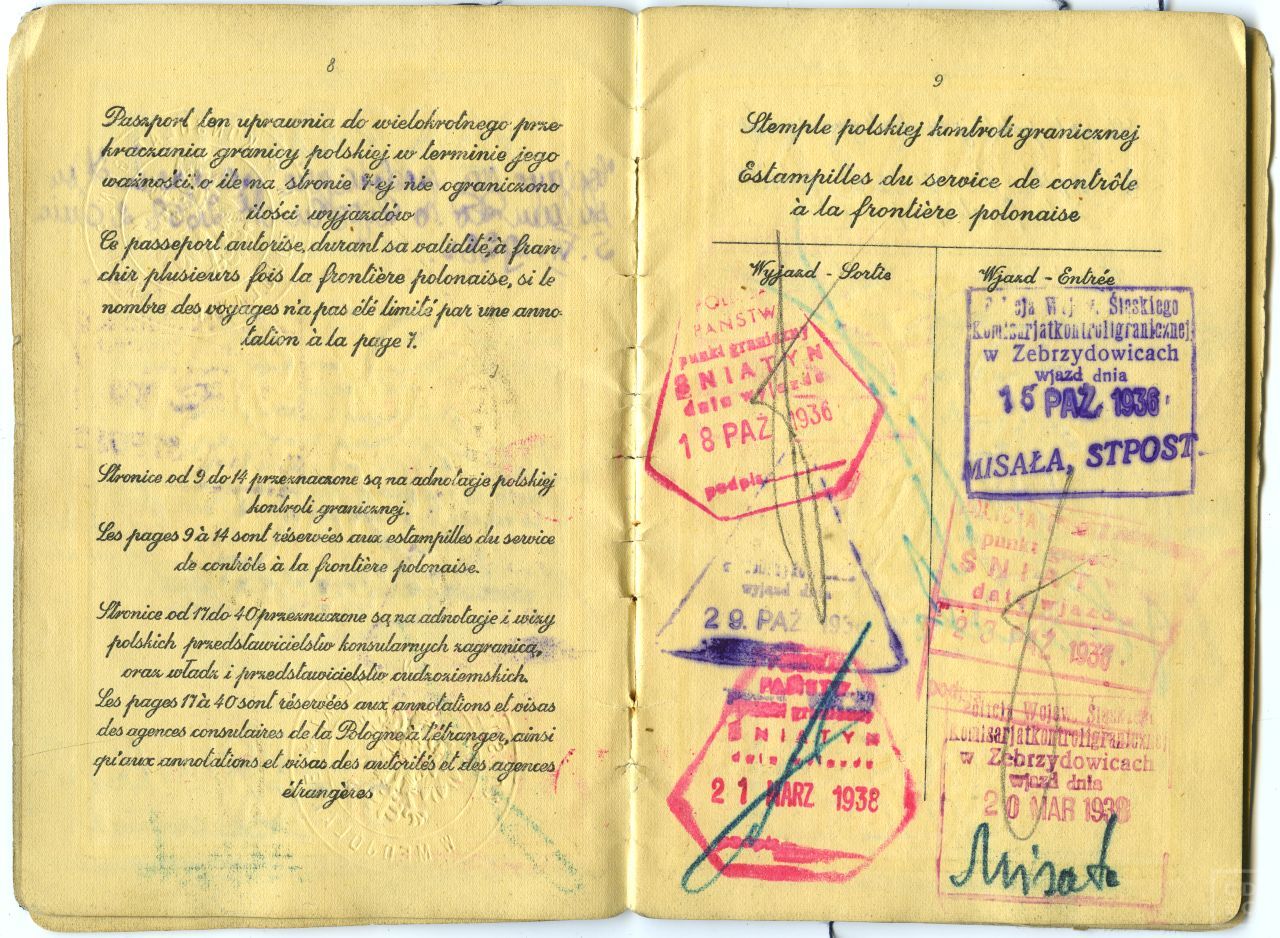 8
Paszport ten uprawnia do wielokrotnego prze-
kraczania granicy polskiej w terminie jego
ważności, o ile na stronie 7-ej nie ograniczono
ilości wyjazdów
Ce passeport autorise, durant sa validité, à fran-
chir plusieurs fois la frontière polonaise, si le
nombre des voyages n'a pas été limité par une anno-
tation à la page 7.
Stronice od 9 do 14 przeznaczone są na adnotacje polskiej
kontroli granicznej.
Les pages 9 à 14 sont réservées aux estampilles du service
de contrôle à la frontière polonaise.
Stronice od 17 do 40 przeznaczone są na adnotacje i wizy
polskich przedstawicielstw konsularnych zagranicą,
oraz władz i przedstawicielstw cudzoziemskich.
Les pages 17 à 40 sont réservées aux annotations et visas
des agences consulaires de la Pologne à l'étranger, ainsi
qu'aux annotations et visas des autorités et des agences
étrangères
9
Stemple polskiej kontroli granicznej
Estampilles du service de contrôle
à la frontière polonaise
Wyjazd - Sortie
PAŃSTW
punkt graniczny
ŚNIATYN
data wyjazdu
18 PAŹ 1936
podpis
wyjazd dnia
29. PAŹ
PAŃSTW.
graniczny
ŚNIATYN
data
21 MARZ 1938
Wjazd - Entrée
Śląskiego
Komisarjat kontroli granicznej
w Zebrzydowicach
wjazd dnia
15 PAŹ 1936
MISAŁA, STPOST.
punkt
ŚNIATY
data
23 PAŹ 1936.
Policja Wojew. Śląskiego
Komisarjat kontroli granicznej
w Zebrzydowicach
wjazd dnia
20 MAR 1938